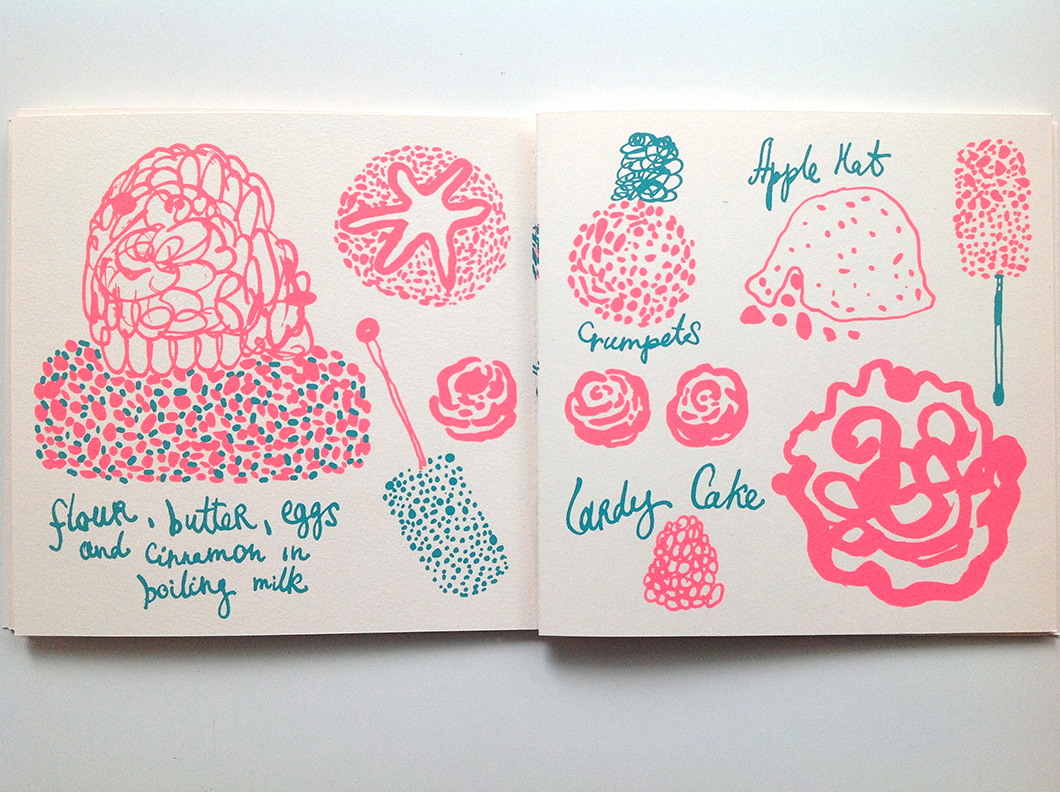 flour, butter, eggs
and cinnamon in
boiling milk
Apple Hat
Crumpets
Lardy Cake